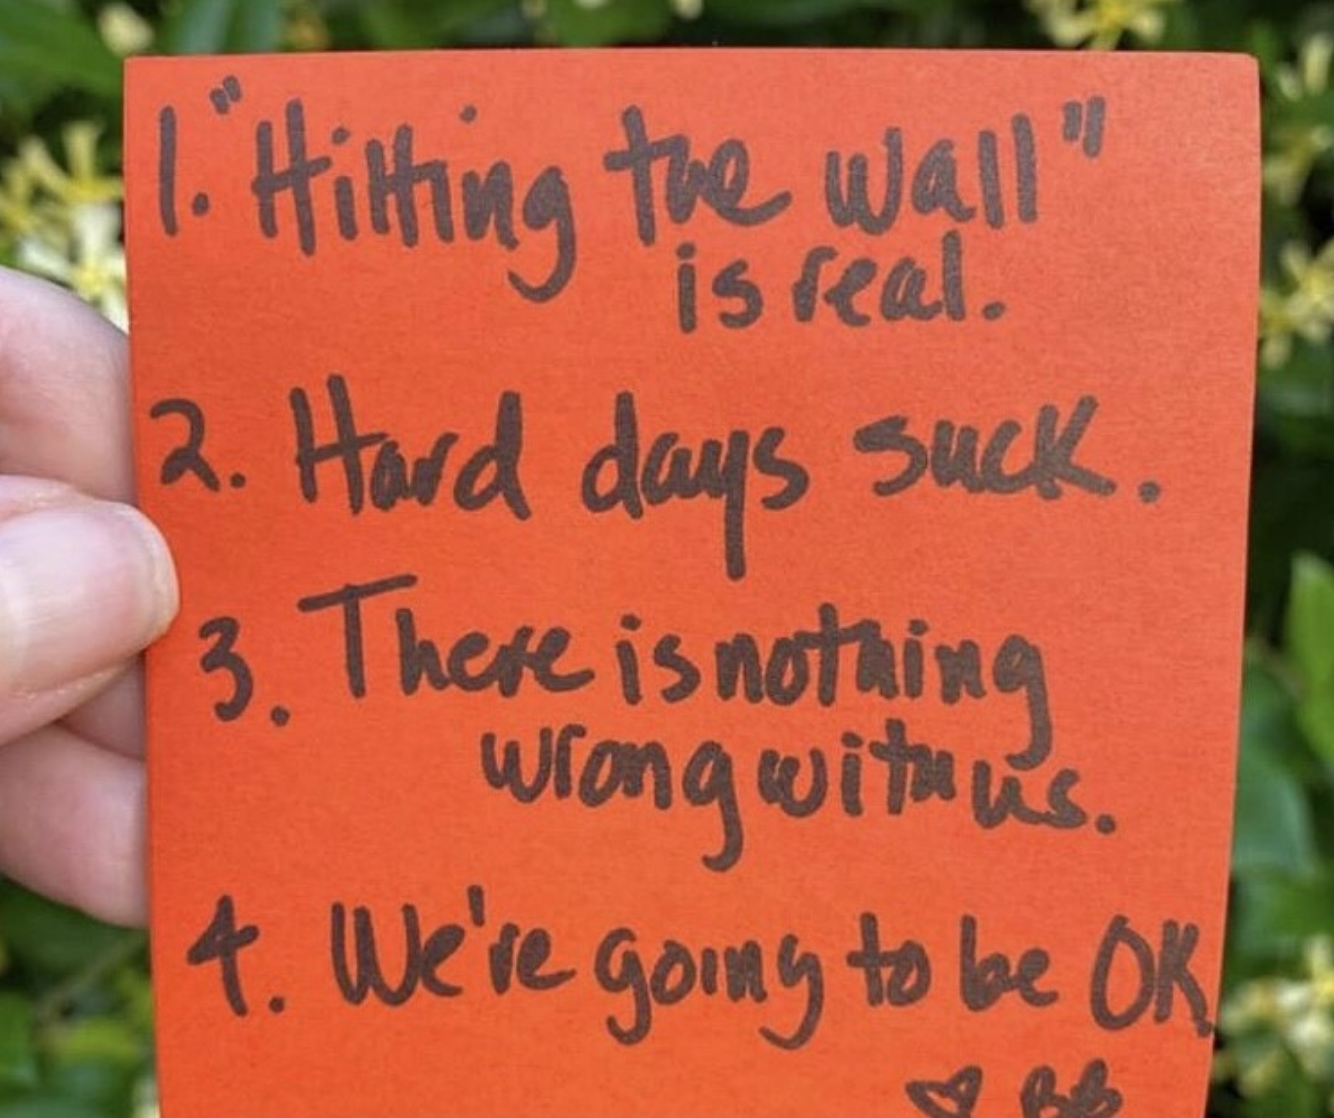 1. "Hitting the wall"
is real.
2. Hard days suck.
3. There is nothing
wrong with us.
4. We're going to be OK.
♡ BB